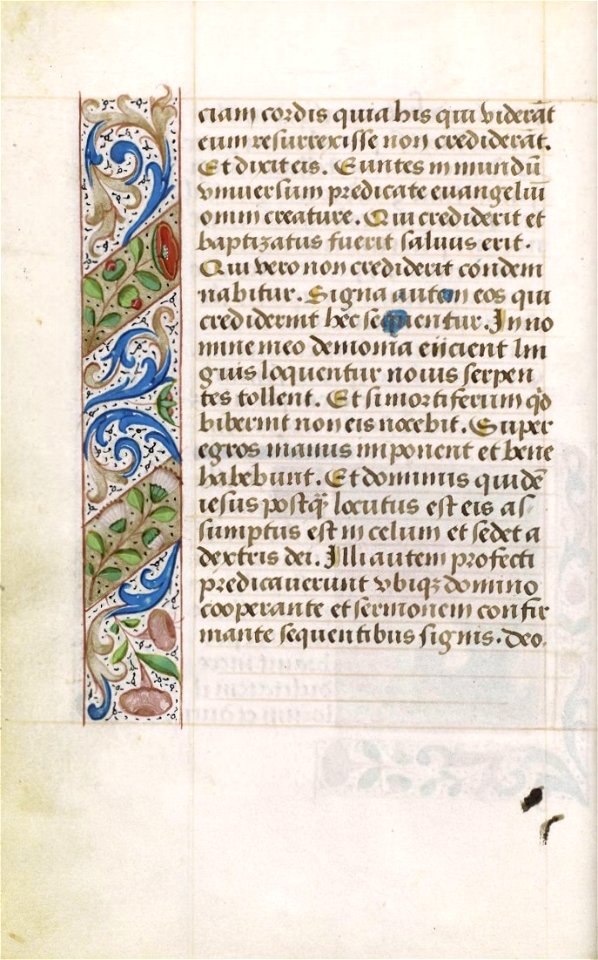 ciam cordis quia his qui viderāt
eum resurrexisse non crediderāt.
Et dixit eis. Euntes in mundū
vniuersum predicate euangeliū
omni creature. Qui crediderit et
baptizatus fuerit saluus erit.
Qui vero non crediderit condem
nabitur. Signa autem eos qui
crediderint hec sequentur. In no
mine meo demonia eiicient lin
guis loquentur nouis serpen
tes tollent. Et si mortiferum qd̄
biberint non eis nocebit. Super
egros manus imponent et bene
habebunt. Et dominus quidē
iesus postq̄ locutus est eis as
sumptus est in celum et sedet a
dextris dei. Illi autem profecti
predicauerunt vbiqꝫ domino
cooperante et sermonem confir
mante sequentibus signis. deo.